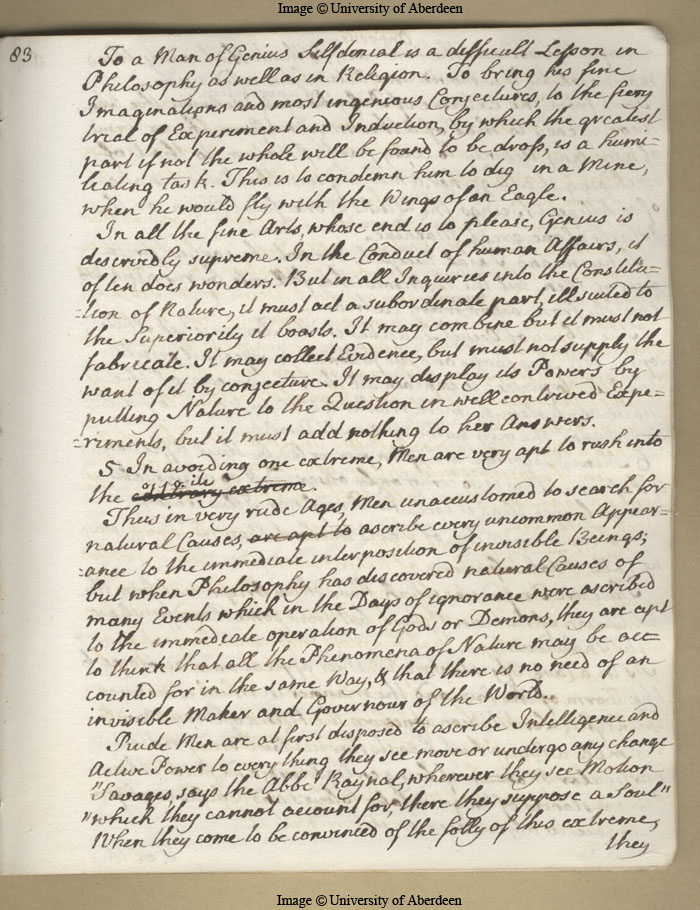 Image © University of Aberdeen
83
To a Man of Genius Selfdenial is a difficult Lesson in
Philosophy as well as in Religion. To bring his fine
Imaginations and most ingenious Conjectures, to the fiery
trial of Experiment and Induction, by which the greatest
part if not the whole will be found to be dross, is a humi-
liating task. This is to condemn him to dig in a Mine,
when he would fly with the Wings of an Eagle.
In all the fine Arts, whose end is to please, Genius is
deservedly supreme. In the Conduct of human Affairs, it
often does wonders. But in all Inquiries into the Constitu-
-tion of Nature, it must act a subordinate part, ill suited to
the Superiority it boasts. It may combine but it must not
fabricate. It may collect Evidence, but must not supply the
want of it by conjecture. It may display its Powers by
putting Nature to the Question in well contrived Expe=
=riments, but it must add nothing to her Answers.
5 In avoiding one extreme, Men are very apt to rush into
opposite
the contrary extreme.
Thus in very rude Ages, Men unaccustomed to search for
natural Causes, are apt to ascribe every uncommon Appear=
=ance to the immediate interposition of invisible Beings;
but when Philosophy has discovered natural Causes of
many Events which in the Days of ignorance were ascribed
to the immediate operation of Gods or Demons, they are apt
to think that all the Phenomena of Nature may be acc=
counted for in the same Way, & that there is no need of an
invisible Maker and Governour of the World.
Rude Men are at first disposed to ascribe Intelligence and
Active Power to every thing they see move or undergo any change
"Savages, says the Abbé Raynal, wherever they see Motion
"which they cannot account for, there they suppose a Soul"
When they come to be convinced of the folly of this extreme,
they
Image © University of Aberdeen